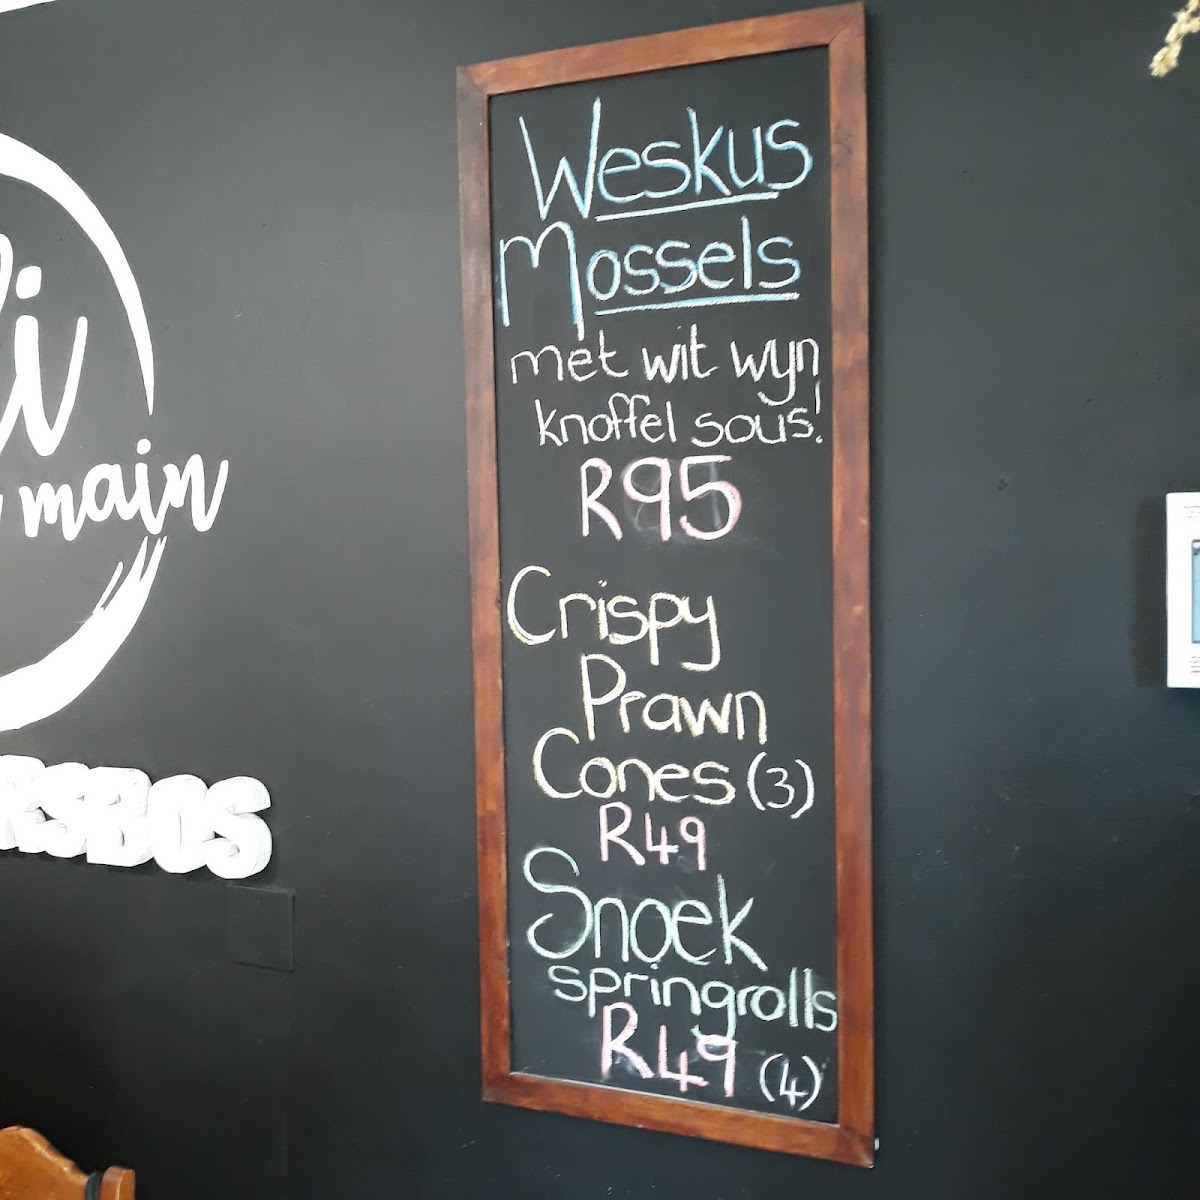 main
Weskus
Mossels
met wit wyn
knoffel sous!
R95
Crispy
Prawn
Cones (3)
R49
Snoek
springrolls
R49 (4)